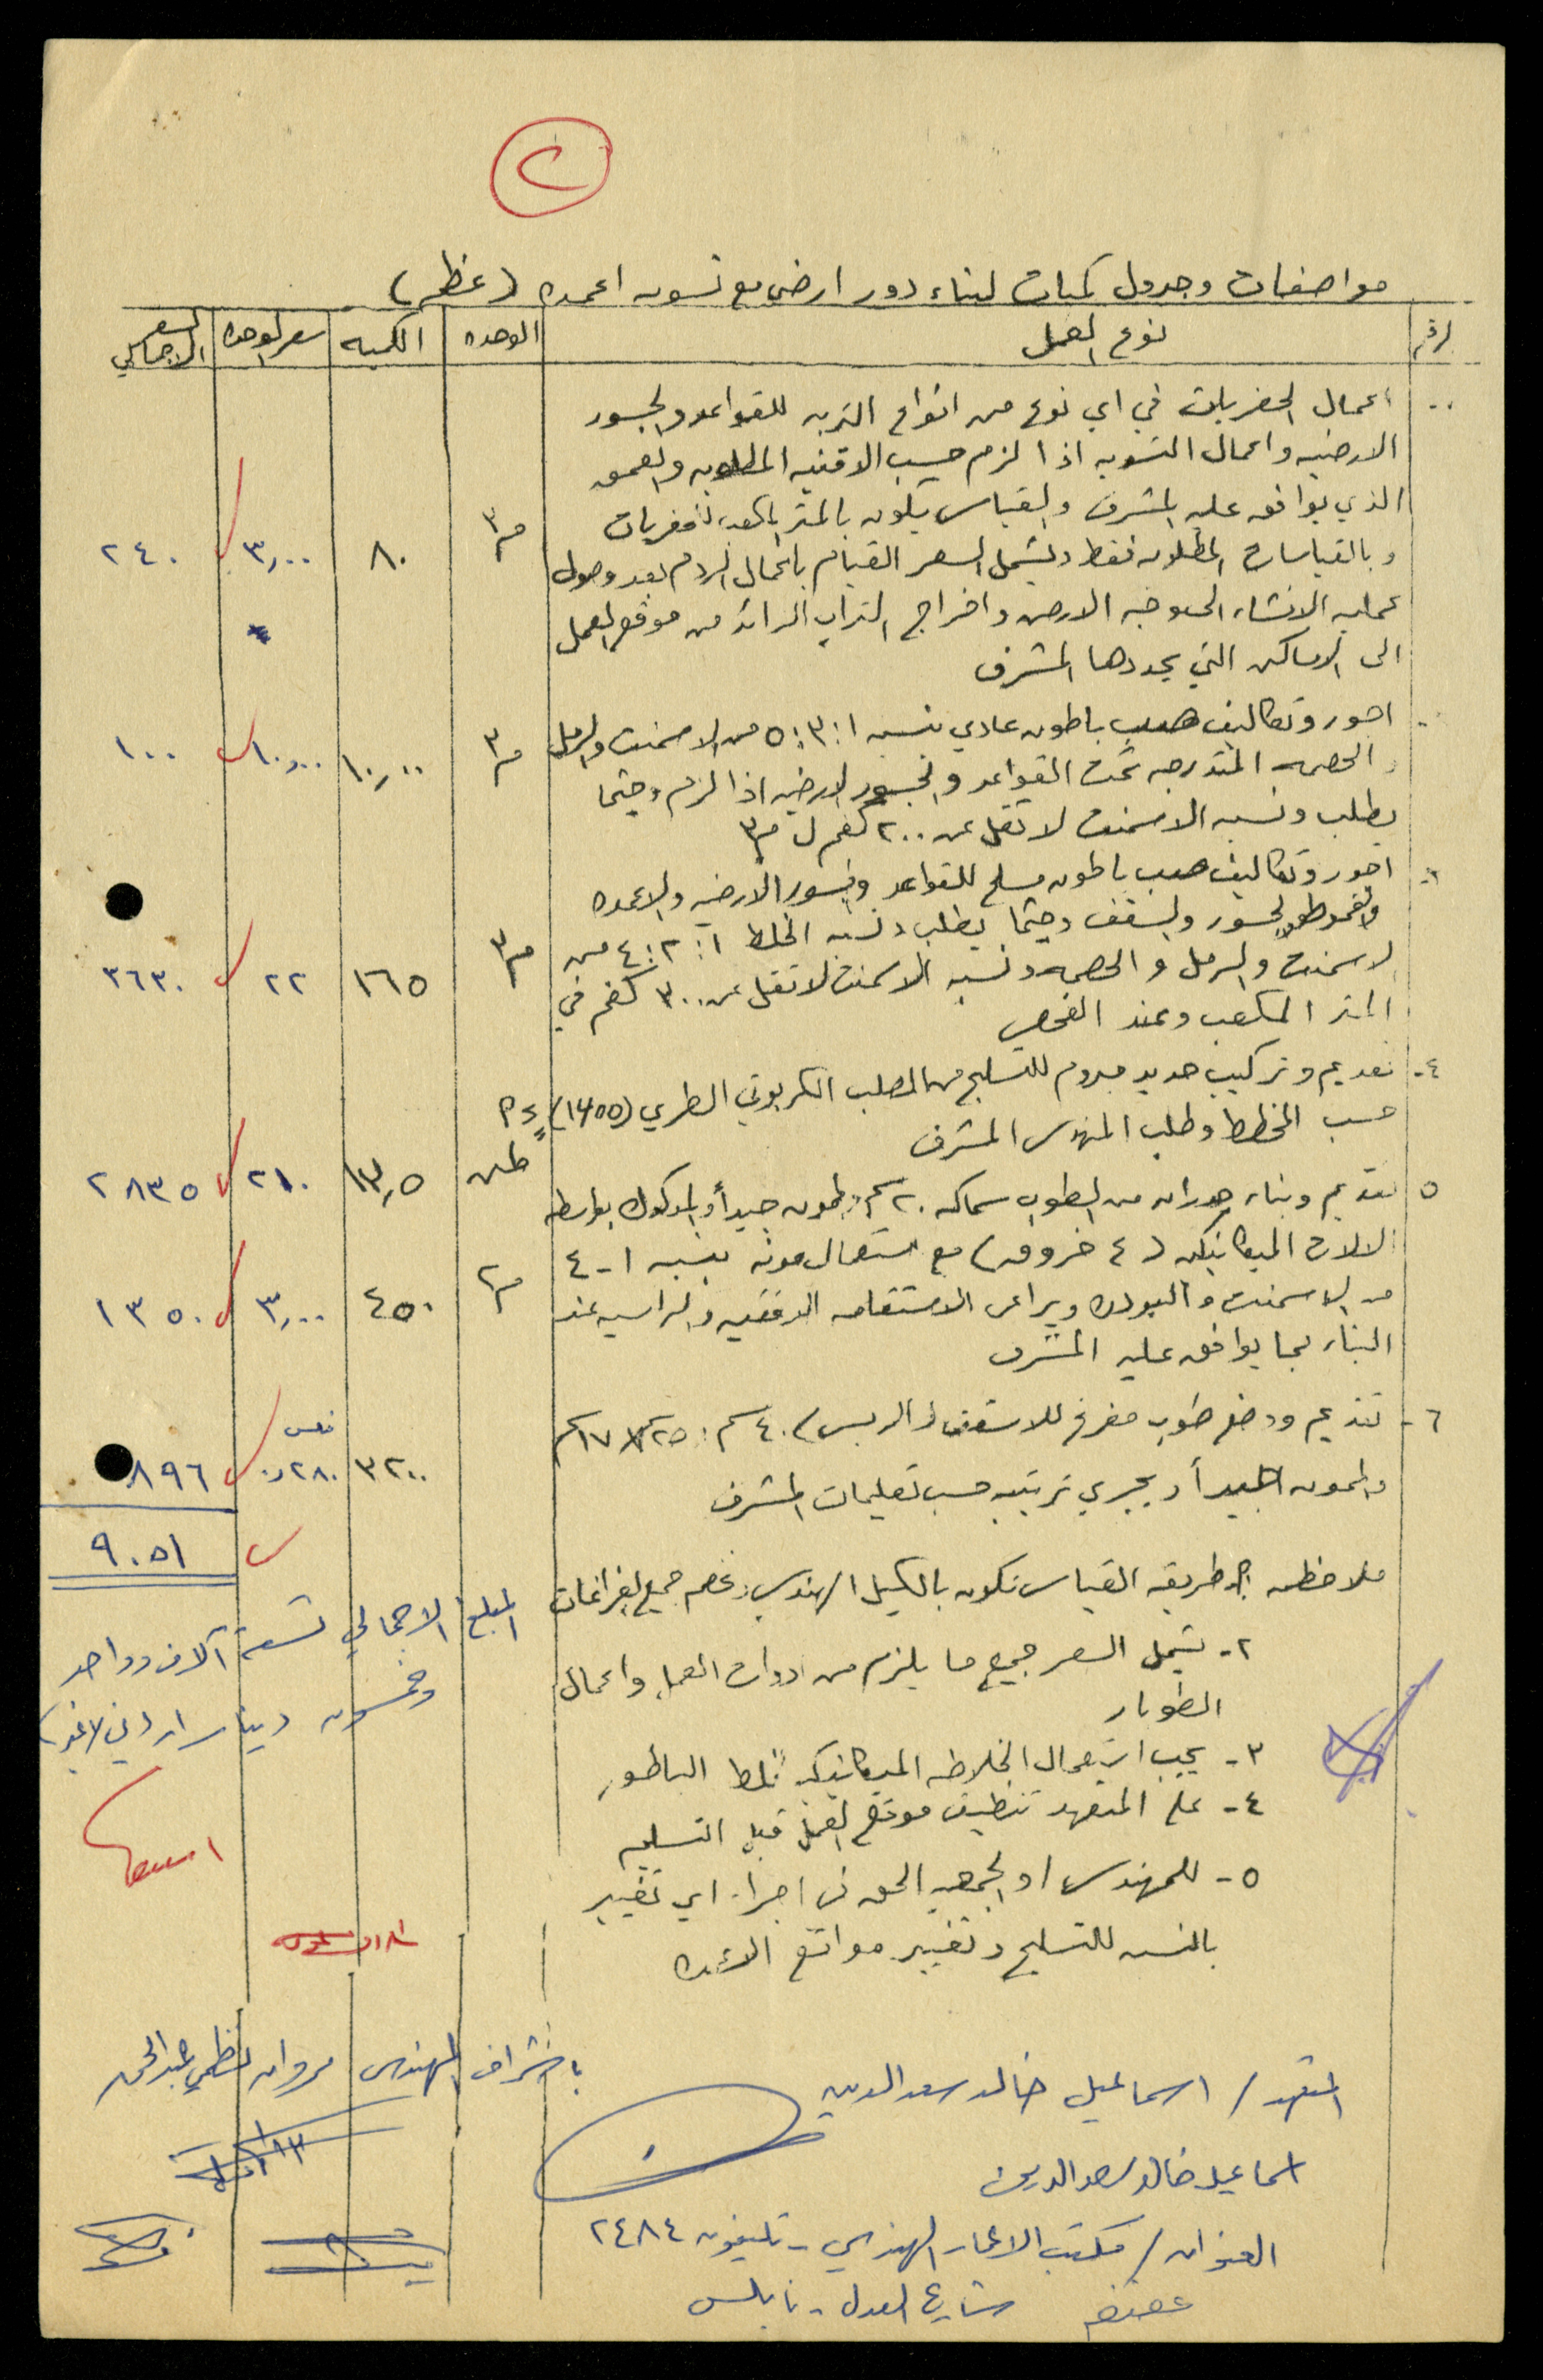 ٢
مواصفات وجدول كميات لبناء دور ارضي مع تسويه اعمده (عظم)
الرقم نوع العمل الوحده الكميه سعر الوحده السعر الاجمالي
اعمال الحفريات في اي نوع من انواع التربه للقواعد والجسور
الارضيه واعمال التسويه اذا لزم حسب الاقنيه المطلوبه والعمق
الذي يوافق عليه المشرف والقياس يكون بالمتر المكعب للحفريات
وبالقياسات المطلوبه فقط ويشمل السعر القيام باعمال الردم بعد وصول
م٣ ٨٠ ٣,٠٠ ٢٤٠
عمليه الانشاء الى وجه الارض واخراج التراب الزائد من موقع العمل
الى الاماكن التي يحددها المشرف
اجور وتكاليف صب باطون عادي بنسبه ١:٣:٥ من الاسمنت والرمل
م٣ ١٠,٠٠ ١٠,٠٠ ١٠٠
والحصمه المتدرجه تحت القواعد والجسور الارضيه اذا لزم وحيثما
يطلب ونسبه الاسمنت لا تقل عن ٢٠٠ كغم ل م٣
اجور وتكاليف صب باطون مسلح للقواعد والجسور الارضيه والاعمده
والجسور والسقف وحيثما يطلب ونسبه الخلط ١:٢:٤ من
م٣ ١٦٥ ٢٢ ٣٦٣٠
الاسمنت والرمل والحصمه ونسبه الاسمنت لا تقل عن ٣٠٠ كغم في
المتر المكعب وعند الفحص
٤- تقديم وتركيب حديد مبروم للتسليح من الصلب الكربوني الطري
حسب المخطط وطلب المهندس المشرف
طن ١٣,٥ ٢١٠ ٢٨٣٥
٥ تقديم وبناء جدران من الطوب سماكه ٢٠ سم والممون جيداً والمدكوك بواسطه
الالات الميكانيكيه (٤ خروق) مع استعمال مونه بنسبه ١-٤
م٢ ٤٥٠ ٣,٠٠ ١٣٥٠
من الاسمنت والبودره ويراعى الاستقامه الافقيه والراسيه عند
البناء بما يوافق عليه المشرف
٦- تقديم ووضع طوب مفرغ للاسقف (الربس) ٤٠ سم × ٢٥ سم × ١٧ سم
٣٢٠٠ ٢٨٠ر٠ فلس ٨٩٦
والممون جيداً ويجري ترتيبه حسب تعليمات المشرف
٩٠٥١
ملاحظه ١- طريقه القياس تكون بالكيل الهندسي وخصم جميع الفراغات
المبلغ الاجمالي تسعة آلاف وواحد
وخمسون دينار اردني لا غير
٢- يشمل السعر جميع ما يلزم من ادوات العمل واعمال
الطوبار
٣- يجب استعمال الخلاطه الميكانيكيه لخلط الباطون
٤- على المتعهد تنظيف موقع العمل قبل التسليم
٥- للمهندس او الجمعيه الحق في اجراء اي تغيير
بالنسبه للتسليح وتغيير مواقع الاعمده
باشراف المهندس مروان نظمي عبد الحق
المتعهد / اسماعيل خالد سعد الدين
اسماعيل خالد سعد الدين
العنوان / مكتب الاعمار الهندسي - تليفون ٢٤٨٤
شارع العدل - نابلس